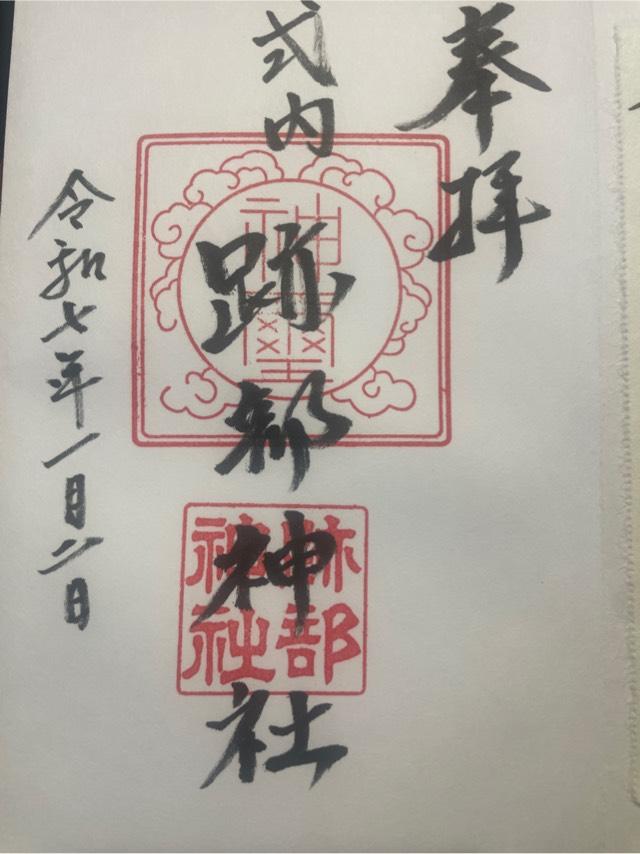 奉拝
式内
跡部神社
令和七年一月二日
跡部
神社